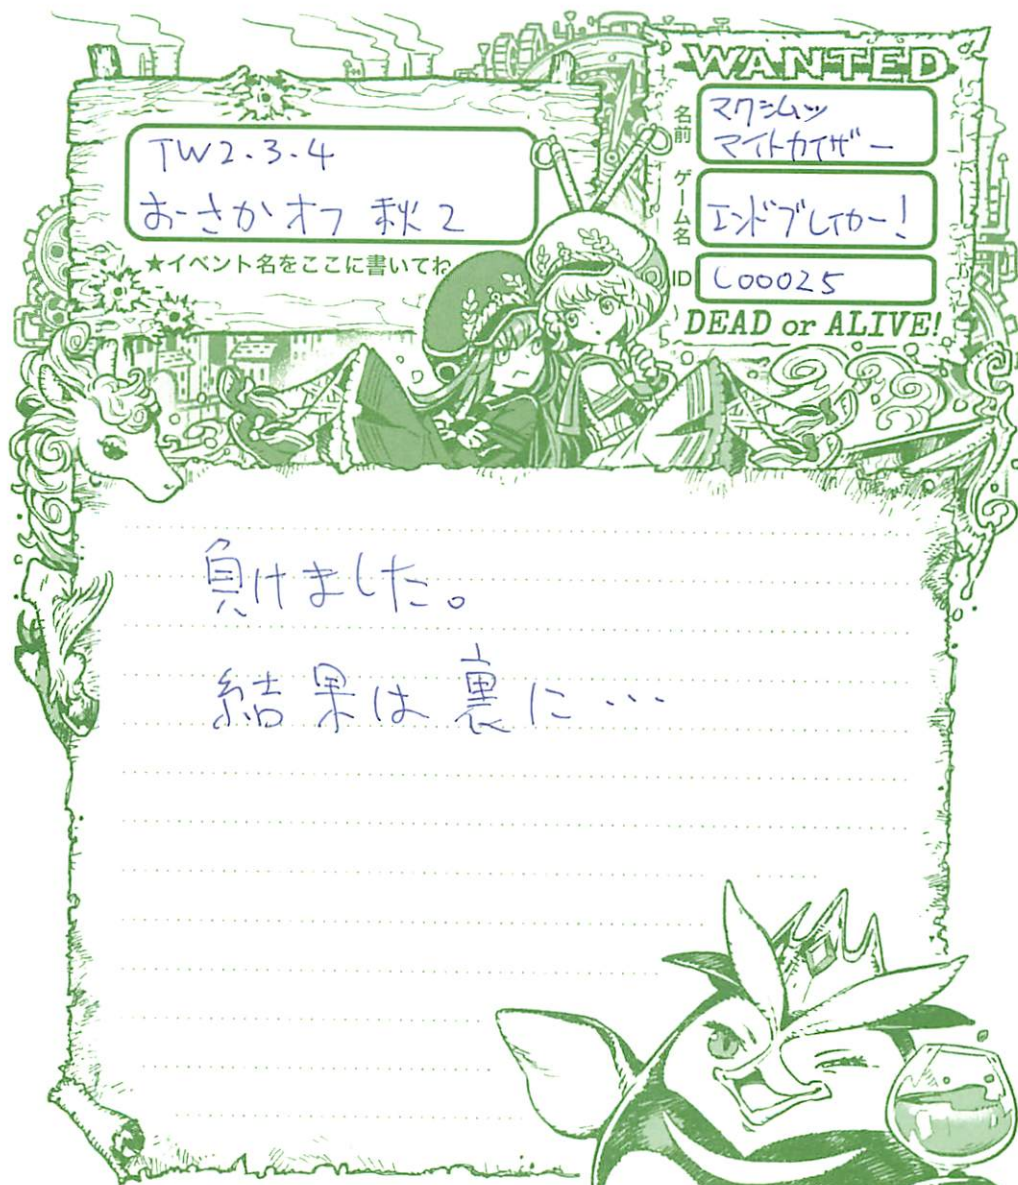 TW2・3・4
おーさかオフ 秋2
★イベント名をここに書いてね
WANTED
名前
マクシムッ
マイトカイザー
ゲーム名
エンドブレイカー！
ID
C00025
DEAD or ALIVE!
負けました。
結果は裏に…